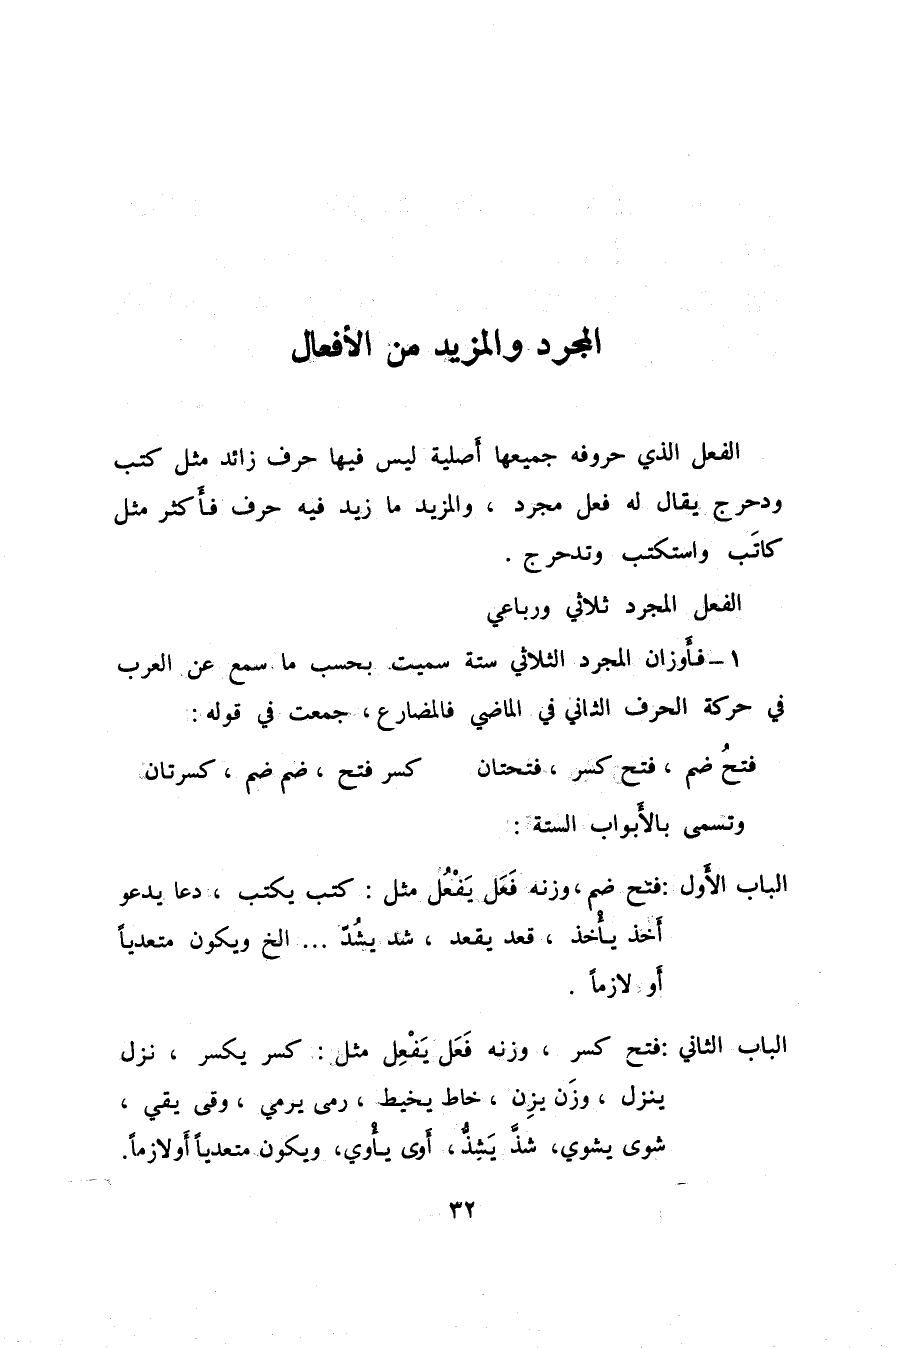 المجرد والمزيد من الأفعال
الفعل الذي حروفه جميعها أصلية ليس فيها حرف زائد مثل كتب
ودحرج يقال له فعل مجرد ، والمزيد ما زيد فيه حرف فأكثر مثل
كاتَب واستكتب وتدحرج .
الفعل المجرد ثلاثي ورباعي
١ – فأوزان المجرد الثلاثي ستة سميت بحسب ما سمع عن العرب
في حركة الحرف الثاني في الماضي فالمضارع ، جمعت في قوله :
فتحُ ضم ، فتح كسر ، فتحتان كسر فتح ، ضم ضم ، كسرتان
وتسمى بالأبواب الستة :
الباب الأول : فتح ضم ، وزنه فَعَل يَفْعُل مثل : كتب يكتب ، دعا يدعو
أخذ يأخذ ، قعد يقعد ، شد يشُدّ ... الخ ويكون متعدياً
أو لازماً .
الباب الثاني : فتح كسر ، وزنه فَعَل يَفْعِل مثل : كسر يكسر ، نزل
ينزل ، وزَن يزِن ، خاط يخيط ، رمى يرمي ، وقى يقي ،
شوى يشوي، شذَّ يَشِذُّ ، أوى يأوي، ويكون متعدياً أو لازماً.
٣٢